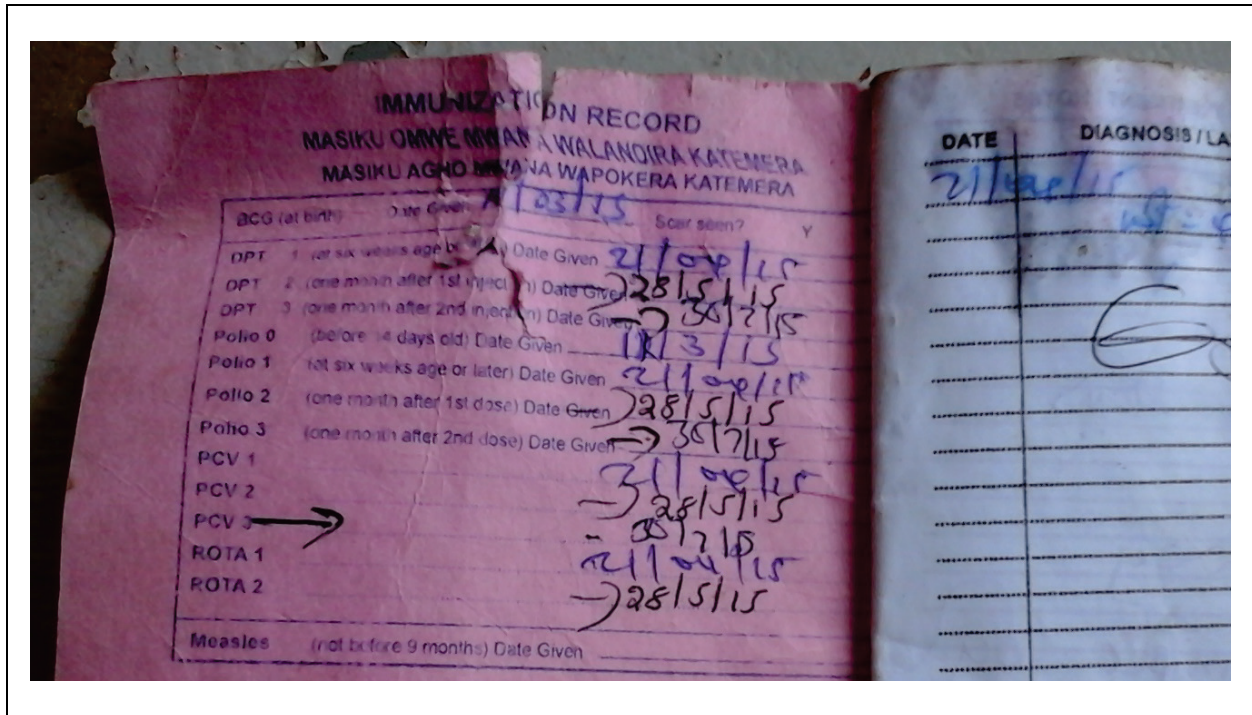 IMMUNIZATION RECORD
MASIKU OMWE MWANA WALANDIRA KATEMERA
MASIKU AGHO MWANA WAPOKERA KATEMERA
BCG (at birth) Date Given /03/15 Scar seen? Y
DPT 1 (at six weeks age ) Date Given 21/04/15
DPT 2 (one month after 1st injection) Date Given 28/5/15
DPT 3 (one month after 2nd injention) Date Given 30/7/15
Polio 0 (before 14 days old) Date Given /3/15
Polio 1 (at six weeks age or later) Date Given 21/04/15
Polio 2 (one month after 1st dose) Date Given 28/5/15
Polio 3 (one month after 2nd dose) Date Given 30/7/15
PCV 1 21/04/15
PCV 2 28/5/15
PCV 3 30/7/15
ROTA 1 21/04/15
ROTA 2 28/5/15
Measles (not before 9 months) Date Given
DATE DIAGNOSIS/LA
21/04/15
wt =